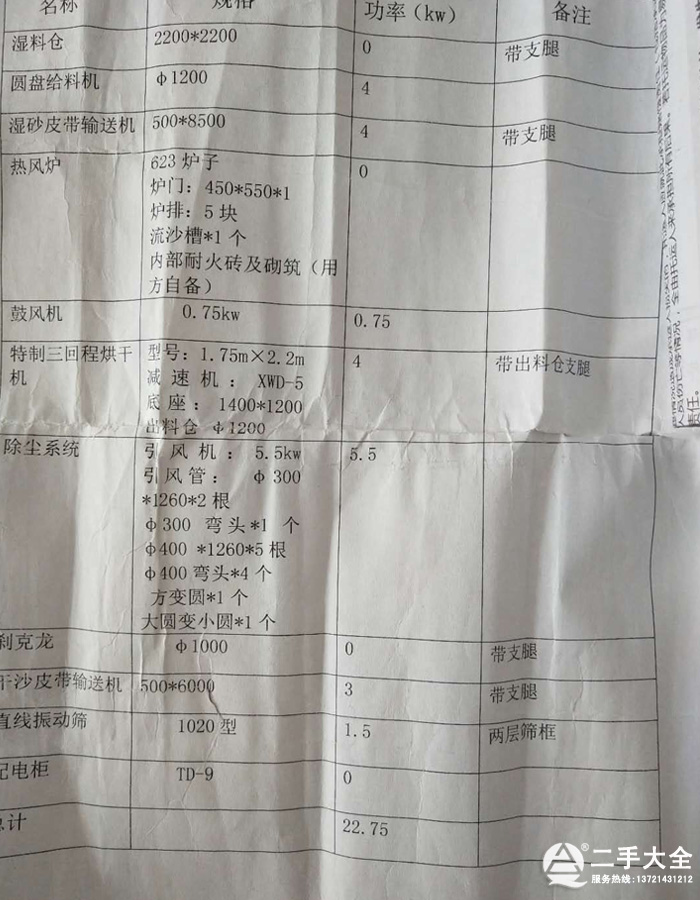 名称 规格 功率（kw） 备注
湿料仓 2200*2200 0 带支腿
圆盘给料机 φ1200 4
湿砂皮带输送机 500*8500 4 带支腿
热风炉 623 炉子 0
炉门：450*550*1
炉排：5 块
流沙槽*1 个
内部耐火砖及砌筑（用
方自备）
鼓风机 0.75kw 0.75
特制三回程烘干 型号：1.75m×2.2m 4 带出料仓支腿
机 减速机：XWD-5
底座：1400*1200
出料仓 φ1200
除尘系统 引风机：5.5kw 5.5
引风管：φ300
*1260*2 根
φ300 弯头*1 个
φ400 *1260*5 根
φ400 弯头*4 个
方变圆*1 个
大圆变小圆*1 个
刹克龙 φ1000 0 带支腿
干沙皮带输送机 500*6000 3 带支腿
直线振动筛 1020 型 1.5 两层筛框
配电柜 TD-9 0
总计 22.75
责任。
二手大全
服务热线:13721431212